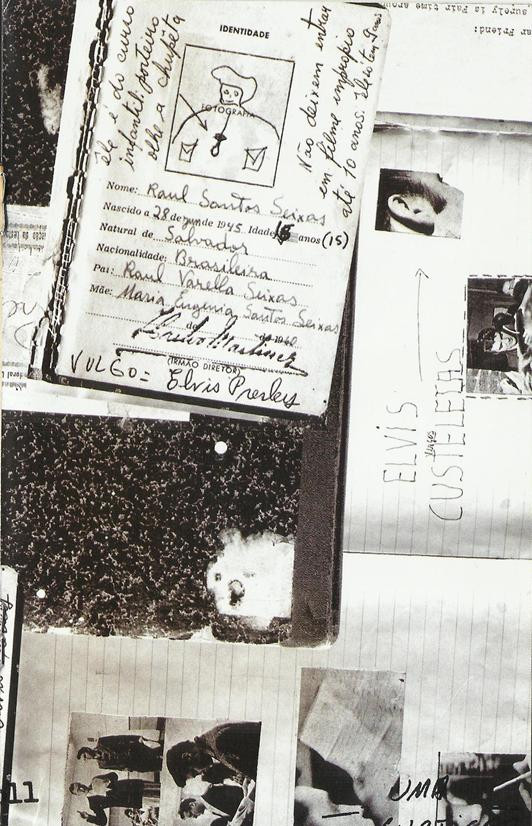 surely is Fair time
ar Friend:
IDENTIDADE
Ele é do curso
infantil. porteiro
olhe a chupêta
FOTOGRAFIA
Não deixem entrar
em filme improprio
até 10 anos. Ele só tem
Nome: Raul Santos Seixas
Nascido a 28 de 1945 Idade 15 anos (15)
Natural de Salvador
Nacionalidade: Brasileira
Pai: Raul Varella Seixas
Mãe: Maria Eugenia Santos Seixas
de de 1960
(IRMÃO DIRETOR)
VULGO = Elvis Presley
ELVIS
CUSTELETAS
11
UMA